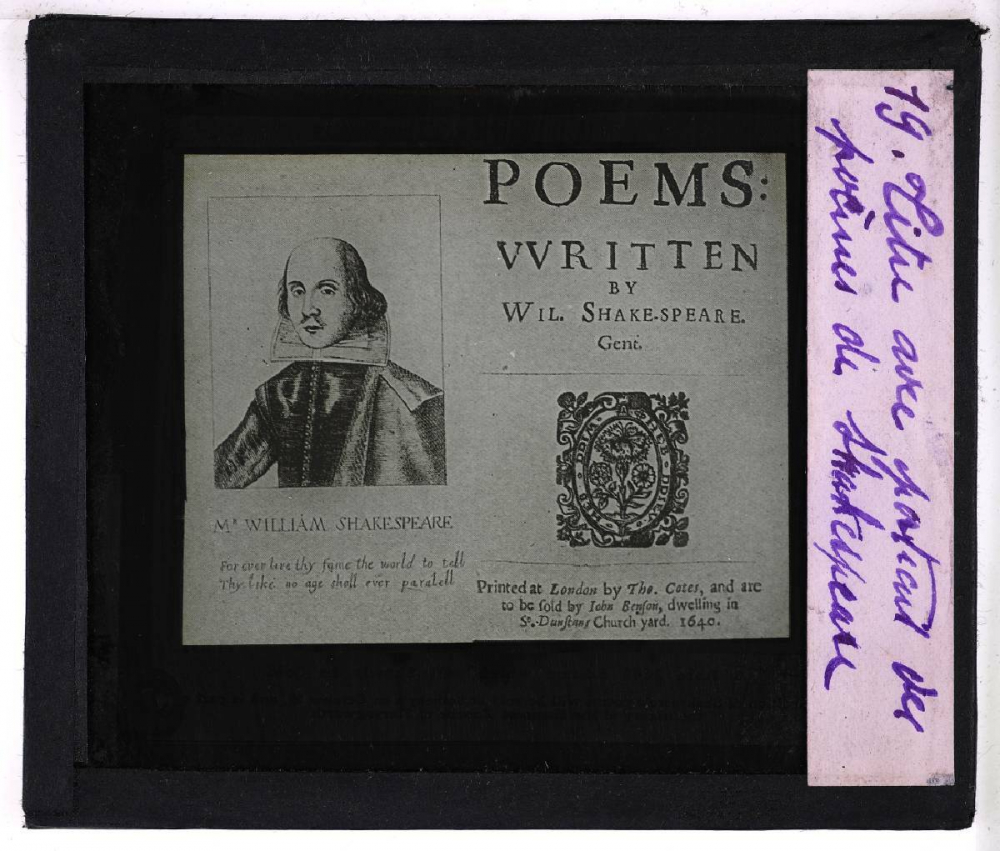 POEMS:
VVRITTEN
BY
WIL. SHAKE-SPEARE.
Gent.
Printed at London by Tho. Cotes, and are
to be sold by Iohn Benson, dwelling in
St. Dunstans Church yard. 1640.
Mr. WILLIAM SHAKESPEARE
For ever live thy fame the world to tell
Thy like no age shall ever paralell
19. Titre avec portrait des
poèmes de Shakespeare